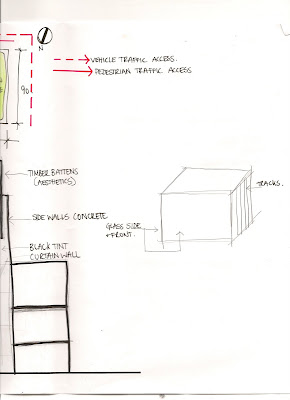 N
VEHICLE TRAFFIC ACCESS.
PEDESTRIAN TRAFFIC ACCESS
90
TIMBER BATTENS
(AESTHETICS)
TRACKS.
SIDE WALLS CONCRETE
GLASS SIDE
+ FRONT.
BLACK TINT
CURTAIN WALL